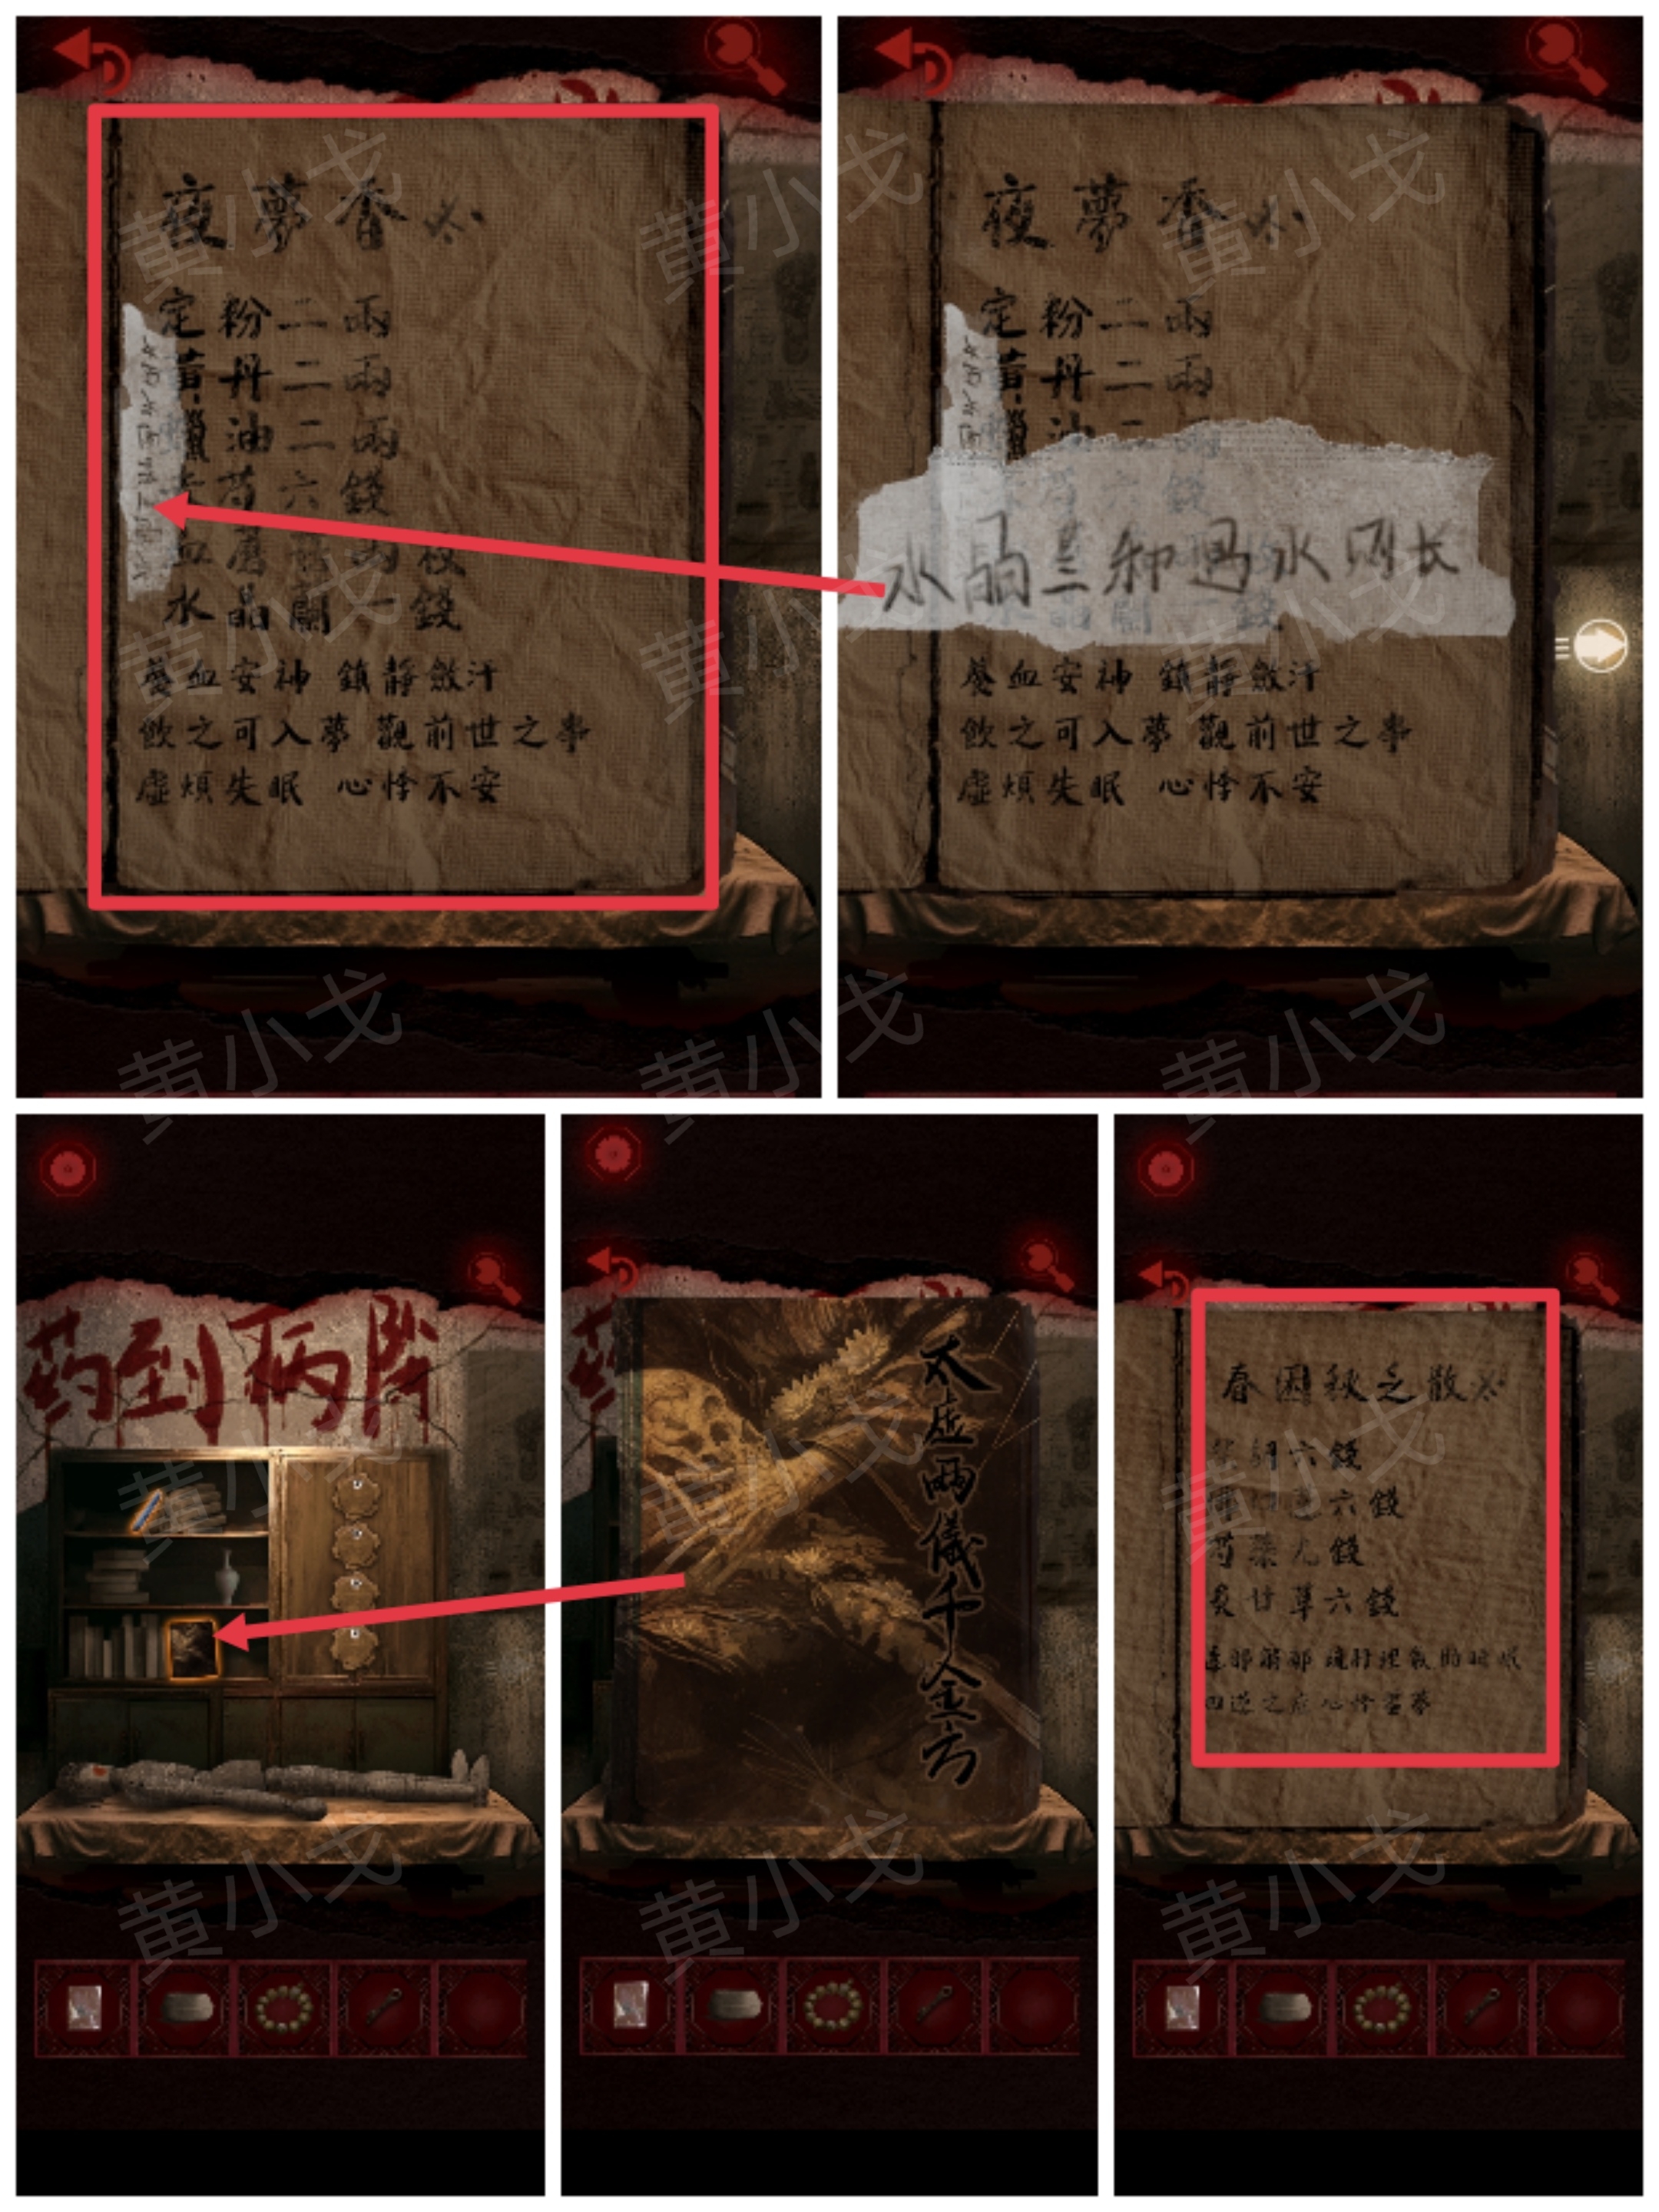 夜夢香
定粉二兩
黃丹二兩
油二兩
芍六錢
血
水晶蘭一錢
養血安神 鎮靜斂汗
飲之可入夢 觀前世之事
虛煩失眠 心悸不安
夜夢香
定粉二兩
黃丹二兩
油二
水晶兰和遇水则长
養血安神 鎮靜斂汗
飲之可入夢 觀前世之事
虛煩失眠 心悸不安
药到病除
太虛兩儀千金方
春困秋乏散
胡六錢
六錢
芍藥九錢
炙甘草六錢
黄小戈